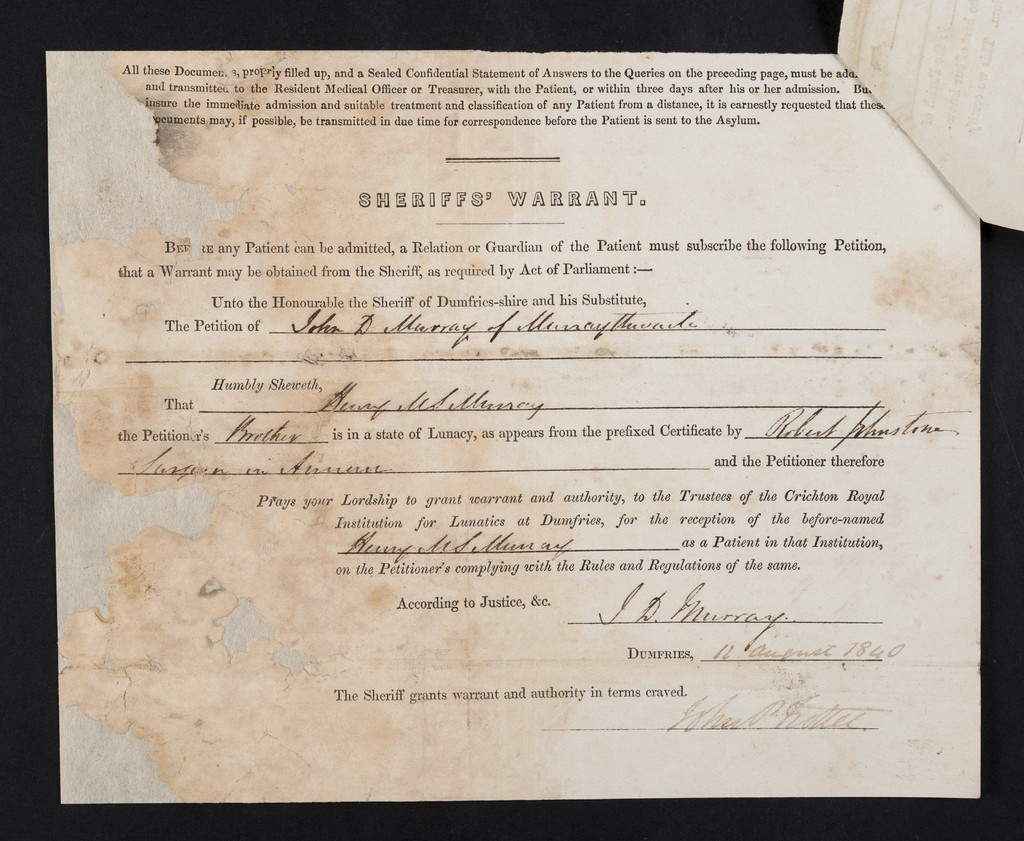 All these Documen s, properly filled up, and a Sealed Confidential Statement of Answers to the Queries on the preceding page, must be add
and transmitted to the Resident Medical Officer or Treasurer, with the Patient, or within three days after his or her admission. Bu
insure the immediate admission and suitable treatment and classification of any Patient from a distance, it is earnestly requested that these
ocuments may, if possible, be transmitted in due time for correspondence before the Patient is sent to the Asylum.
SHERIFFS' WARRANT.
BEF RE any Patient can be admitted, a Relation or Guardian of the Patient must subscribe the following Petition,
that a Warrant may be obtained from the Sheriff, as required by Act of Parliament:—
Unto the Honourable the Sheriff of Dumfries-shire and his Substitute,
The Petition of John D Murray of Murraythwaite
Humbly Sheweth,
That Henry M S Murray
the Petitioner's Brother is in a state of Lunacy, as appears from the prefixed Certificate by Robert Johnstone
Surgeon in Annan and the Petitioner therefore
Prays your Lordship to grant warrant and authority, to the Trustees of the Crichton Royal
Institution for Lunatics at Dumfries, for the reception of the before-named
Henry M S Murray as a Patient in that Institution,
on the Petitioner's complying with the Rules and Regulations of the same.
According to Justice, &c.
J D. Murray.
DUMFRIES, august 1840
The Sheriff grants warrant and authority in terms craved.
John